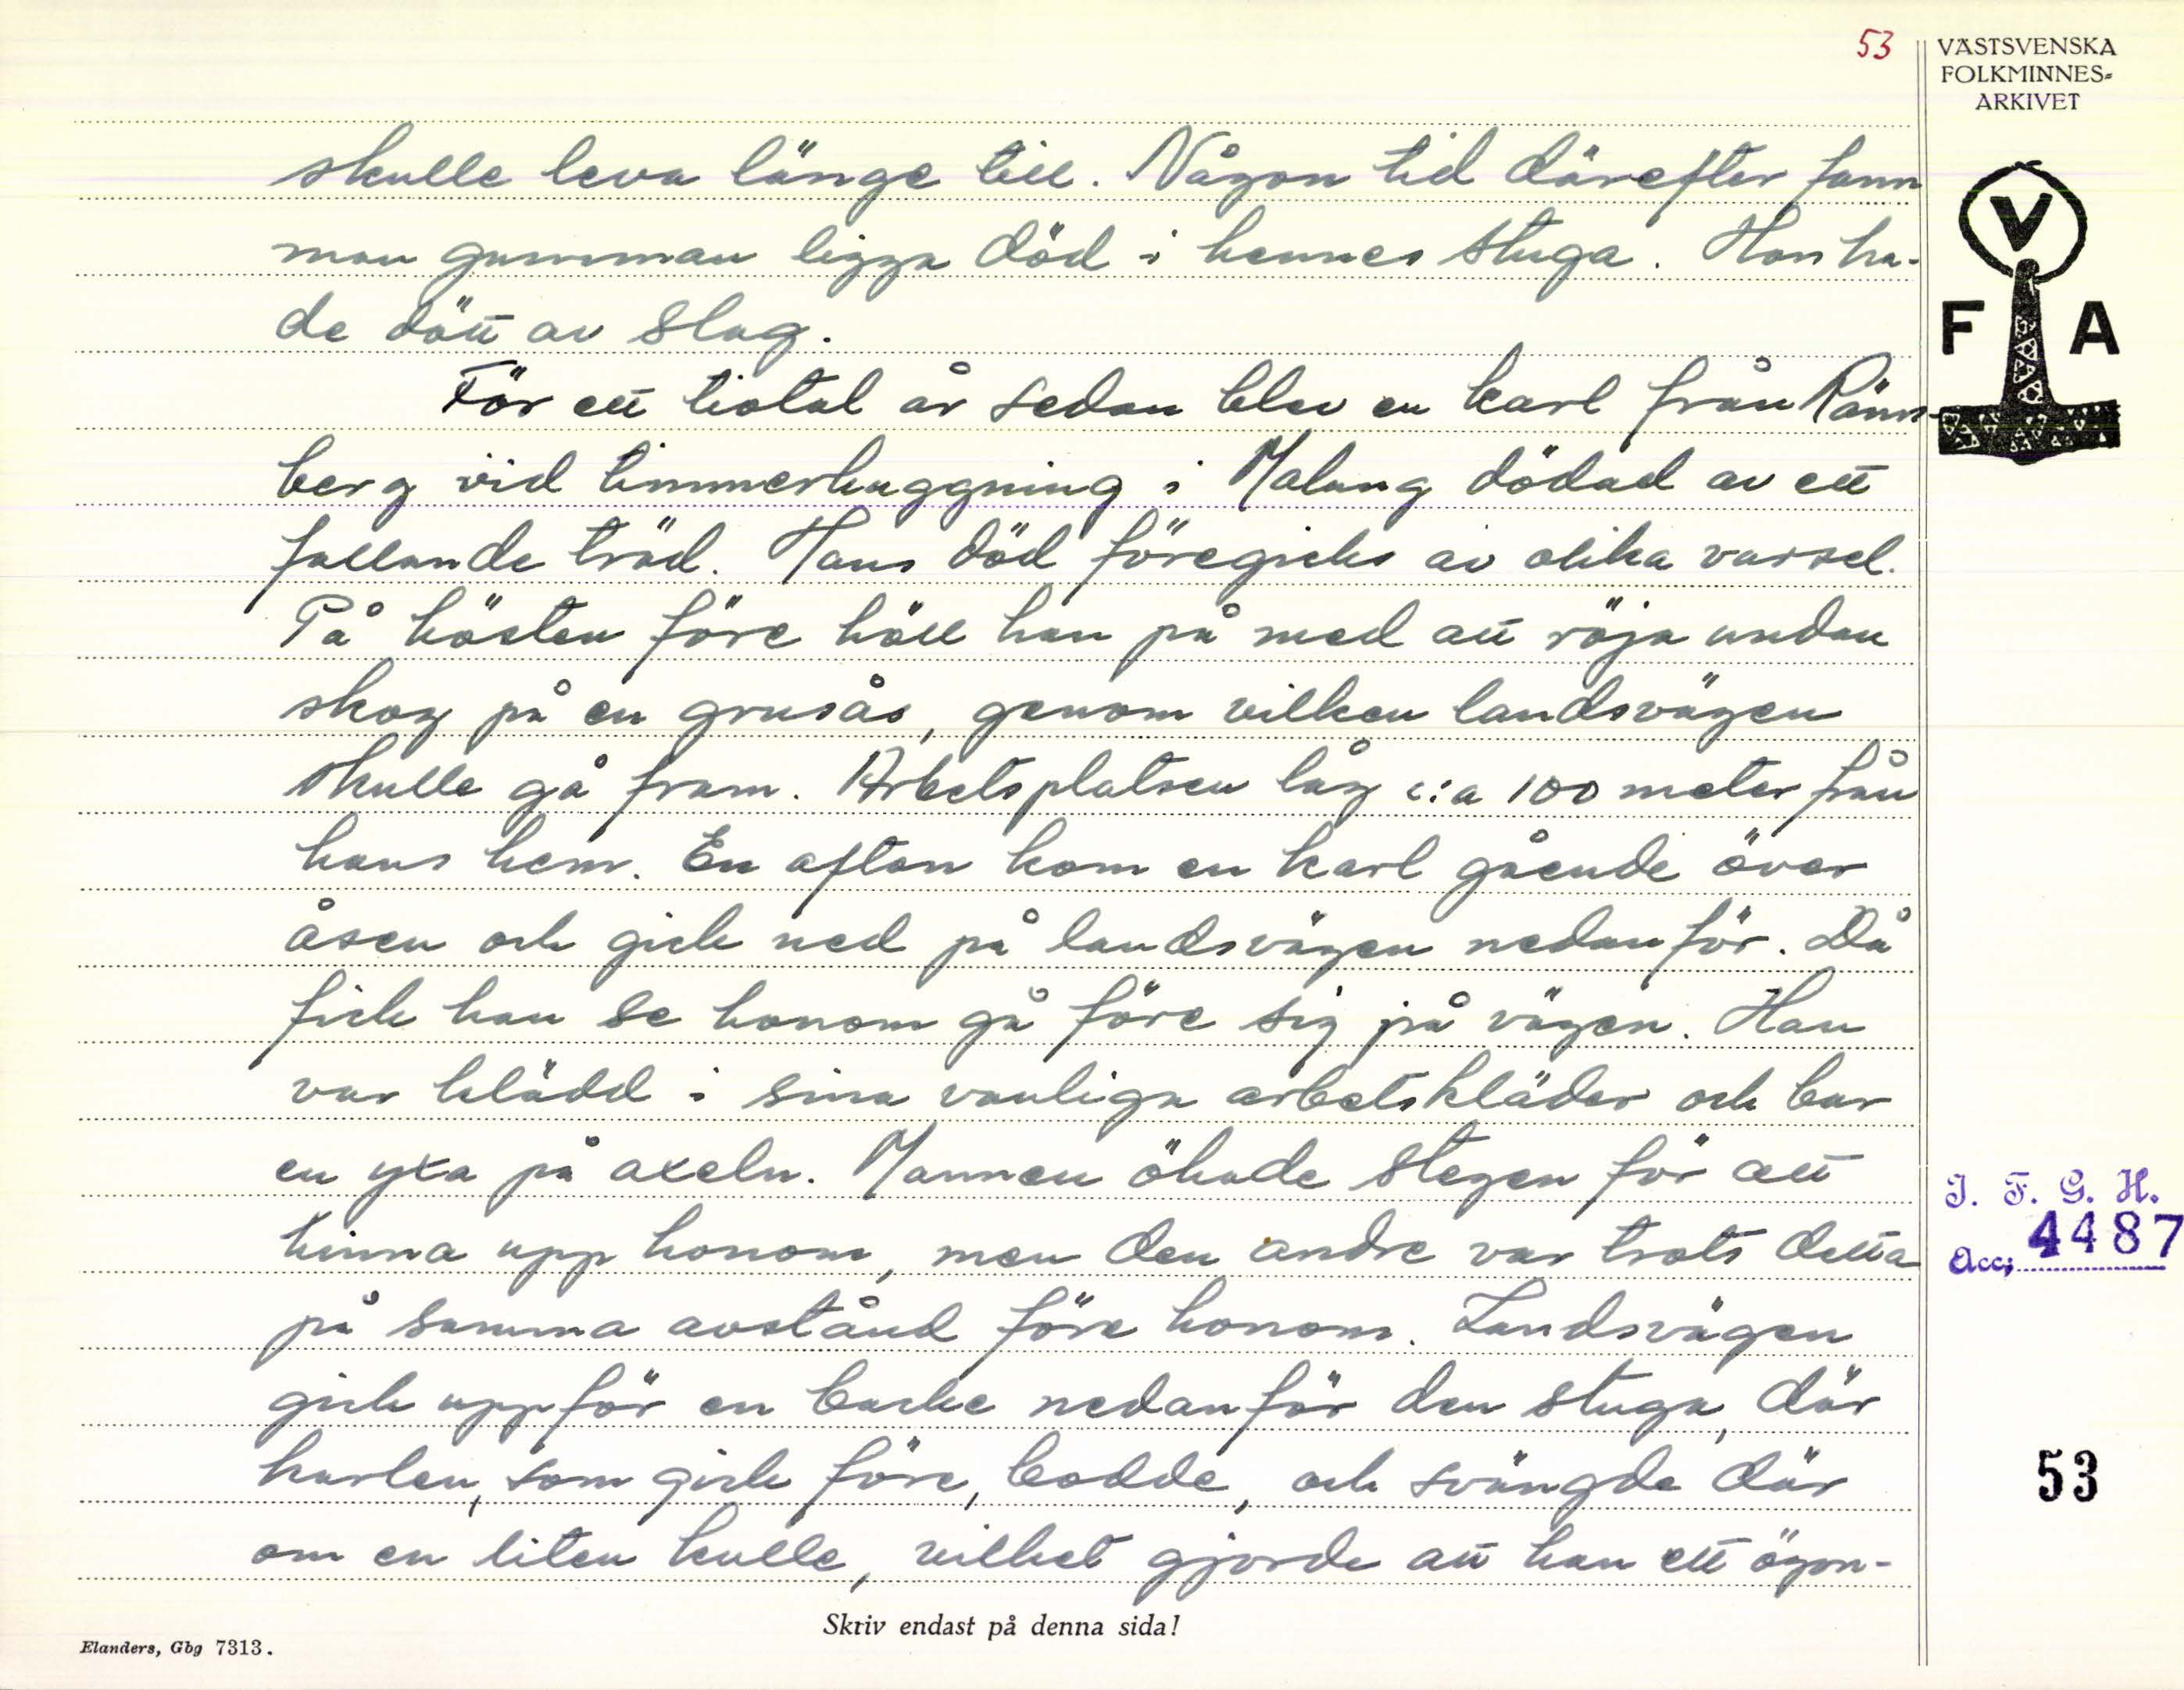 53
VÄSTSVENSKA
FOLKMINNES-
ARKIVET
V
F A
skulle leva länge till. Någon tid därefter fann
man gumman ligga död i hennes stuga. Hon ha-
de dött av slag.
För ett tiotal år sedan blev en karl från Ränn-
berg vid timmerhuggning i Malung dödad av ett
fallande träd. Hans död föregicks av olika varsel.
På hösten före höll han på med att röja undan
skog på en grusås, genom vilken landsvägen
skulle gå fram. Arbetsplatsen låg c:a 100 meter från
hans hem. En afton kom en karl gående över
åsen och gick ned på landsvägen nedanför. Då
fick han se honom gå före sig på vägen. Han
var klädd i sina vanliga arbetskläder och bar
en yxa på axeln. Mannen ökade stegen för att
hinna upp honom, men den andre var trots detta
på samma avstånd före honom. Landsvägen
gick uppför en backe nedanför den stuga, där
karlen, som gick före, bodde, och svängde där
om en liten kulle, vilket gjorde att han ett ögon-
I. F. G. H.
Acc; 4487
53
Skriv endast på denna sida!
Elanders, Gbg 7313.